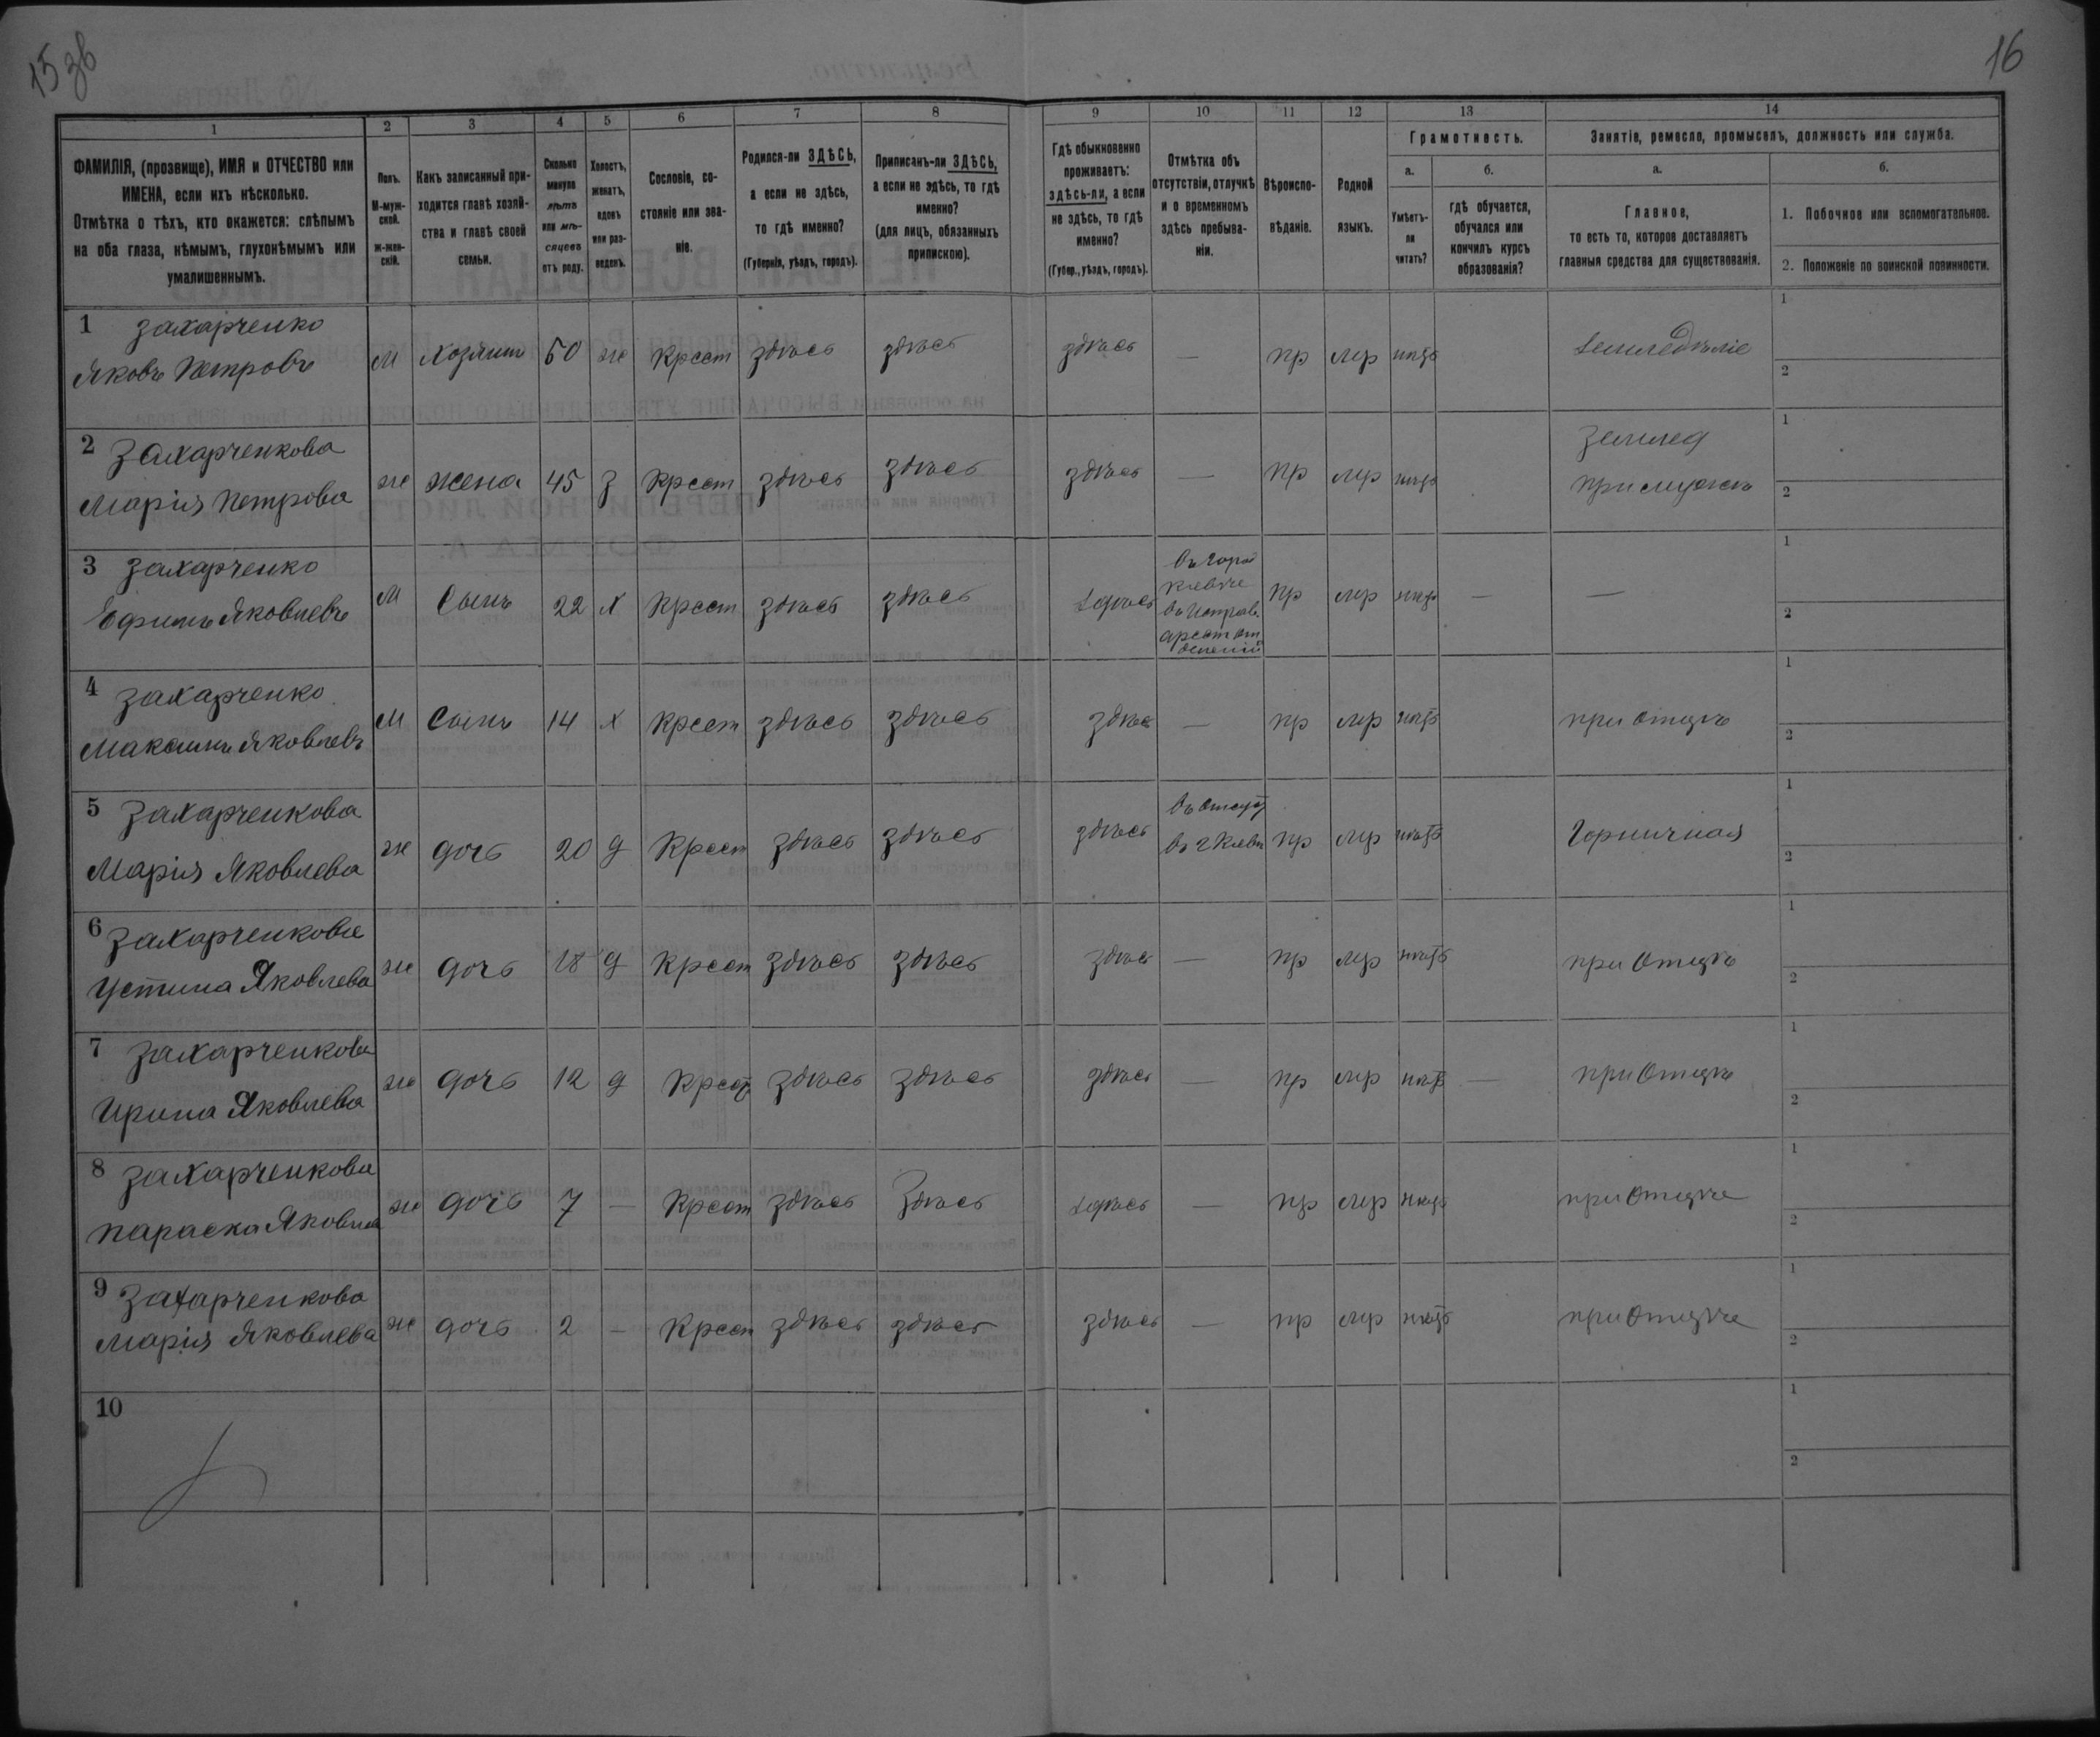 15 зв
16
1 2 3 4 5 6 7 8 9 10 11 12 13 14
ФАМИЛІЯ, (прозвище), ИМЯ и ОТЧЕСТВО или
ИМЕНА, если ихъ нѣсколько.
Отмѣтка о тѣхъ, кто окажется: слѣпымъ
на оба глаза, нѣмымъ, глухонѣмымъ или
умалишеннымъ.
Полъ.
М-муж-
ской.
Ж-жен-
скій.
Какъ записанный при-
ходится главѣ хозяй-
ства и главѣ своей
семьи.
Сколько
минуло
лѣтъ
или мѣ-
сяцевъ
отъ роду.
Холостъ,
женатъ,
вдовъ
или раз-
веденъ.
Сословіе, со-
стояніе или зва-
ніе.
Родился-ли ЗДѢСЬ,
а если не здѣсь,
то гдѣ именно?
(Губернія, уѣздъ, городъ).
Приписанъ-ли ЗДѢСЬ,
а если не здѣсь, то гдѣ
именно?
(для лицъ, обязанныхъ
припискою).
Гдѣ обыкновенно
проживаетъ:
здѣсь-ли, а если
не здѣсь, то гдѣ
именно?
(Губер., уѣздъ, городъ).
Отмѣтка объ
отсутствіи, отлучкѣ
и о временномъ
здѣсь пребыва-
ніи.
Вѣроиспо-
вѣданіе.
Родной
языкъ.
Грамотность.
а.
Умѣетъ-
ли
читать?
б.
гдѣ обучается,
обучался или
кончилъ курсъ
образованія?
Занятіе, ремесло, промыселъ, должность или служба.
а.
Главное,
то есть то, которое доставляетъ
главныя средства для существованія.
б.
1. Побочное или вспомогательное.
2. Положеніе по воинской повинности.
1 Захарченко
Яковъ Петровъ М Хозяинъ 50 ж Крест здѣсь здѣсь здѣсь — пр мр нѣтъ Земледѣліе 1 2
2 Захарченкова
Марія Петрова ж жена 45 з Крест здѣсь здѣсь здѣсь — пр мр нѣтъ Земляд
при мужѣ 1 2
3 Захарченко
Ефимъ Яковлевъ М Сынъ 22 х Крест здѣсь здѣсь здѣсь
въ горо
Кіевѣ
въ Исправ.
арест от
деленіи
пр мр нѣтъ — — 1 2
4 Захарченко
Максимъ Яковлевъ М Сынъ 14 х Крест здѣсь здѣсь здѣсь — пр мр нѣтъ при отцѣ 1 2
5 Захарченкова
Марія Яковлева ж дочь 20 д Крест здѣсь здѣсь здѣсь
въ отсут
въ г Кіевѣ
пр мр нѣтъ Горничная 1 2
6 Захарченкова
Устина Яковлева ж дочь 18 д Крест здѣсь здѣсь здѣсь — пр мр нѣтъ при отцѣ 1 2
7 Захарченкова
Ирина Яковлева ж дочь 12 д Крест здѣсь здѣсь здѣсь — пр мр нѣтъ — при отцѣ 1 2
8 Захарченкова
Параска Яковлева ж дочь 7 — Крест здѣсь здѣсь здѣсь — пр мр нѣтъ при отцѣ 1 2
9 Захарченкова
Марія Яковлева ж дочь 2 — Крест здѣсь здѣсь здѣсь — пр мр нѣтъ при отцѣ 1 2
10 1 2